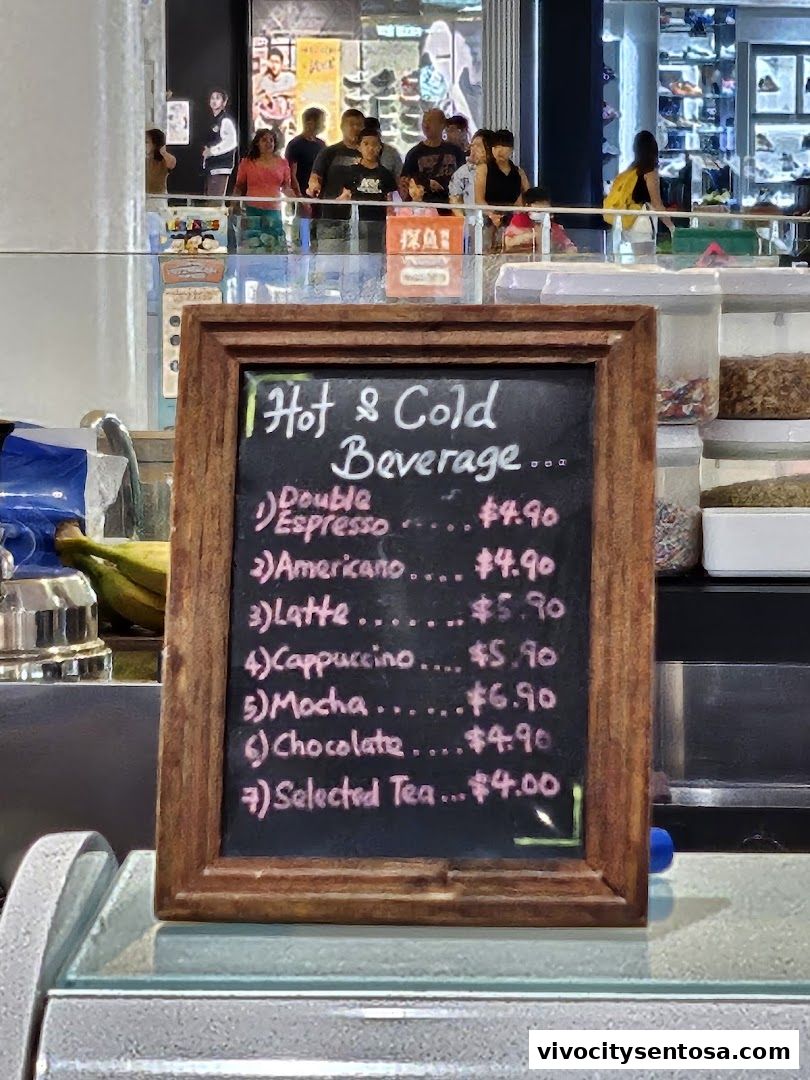 探魚
Hot & Cold
Beverage...
1) Double
Espresso ..... $4.90
2) Americano.... $4.90
3) Latte ....... $5.90
4) Cappuccino.... $5.90
5) Mocha ...... $6.90
6) Chocolate .... $4.90
7) Selected Tea ... $4.00
vivocitysentosa.com